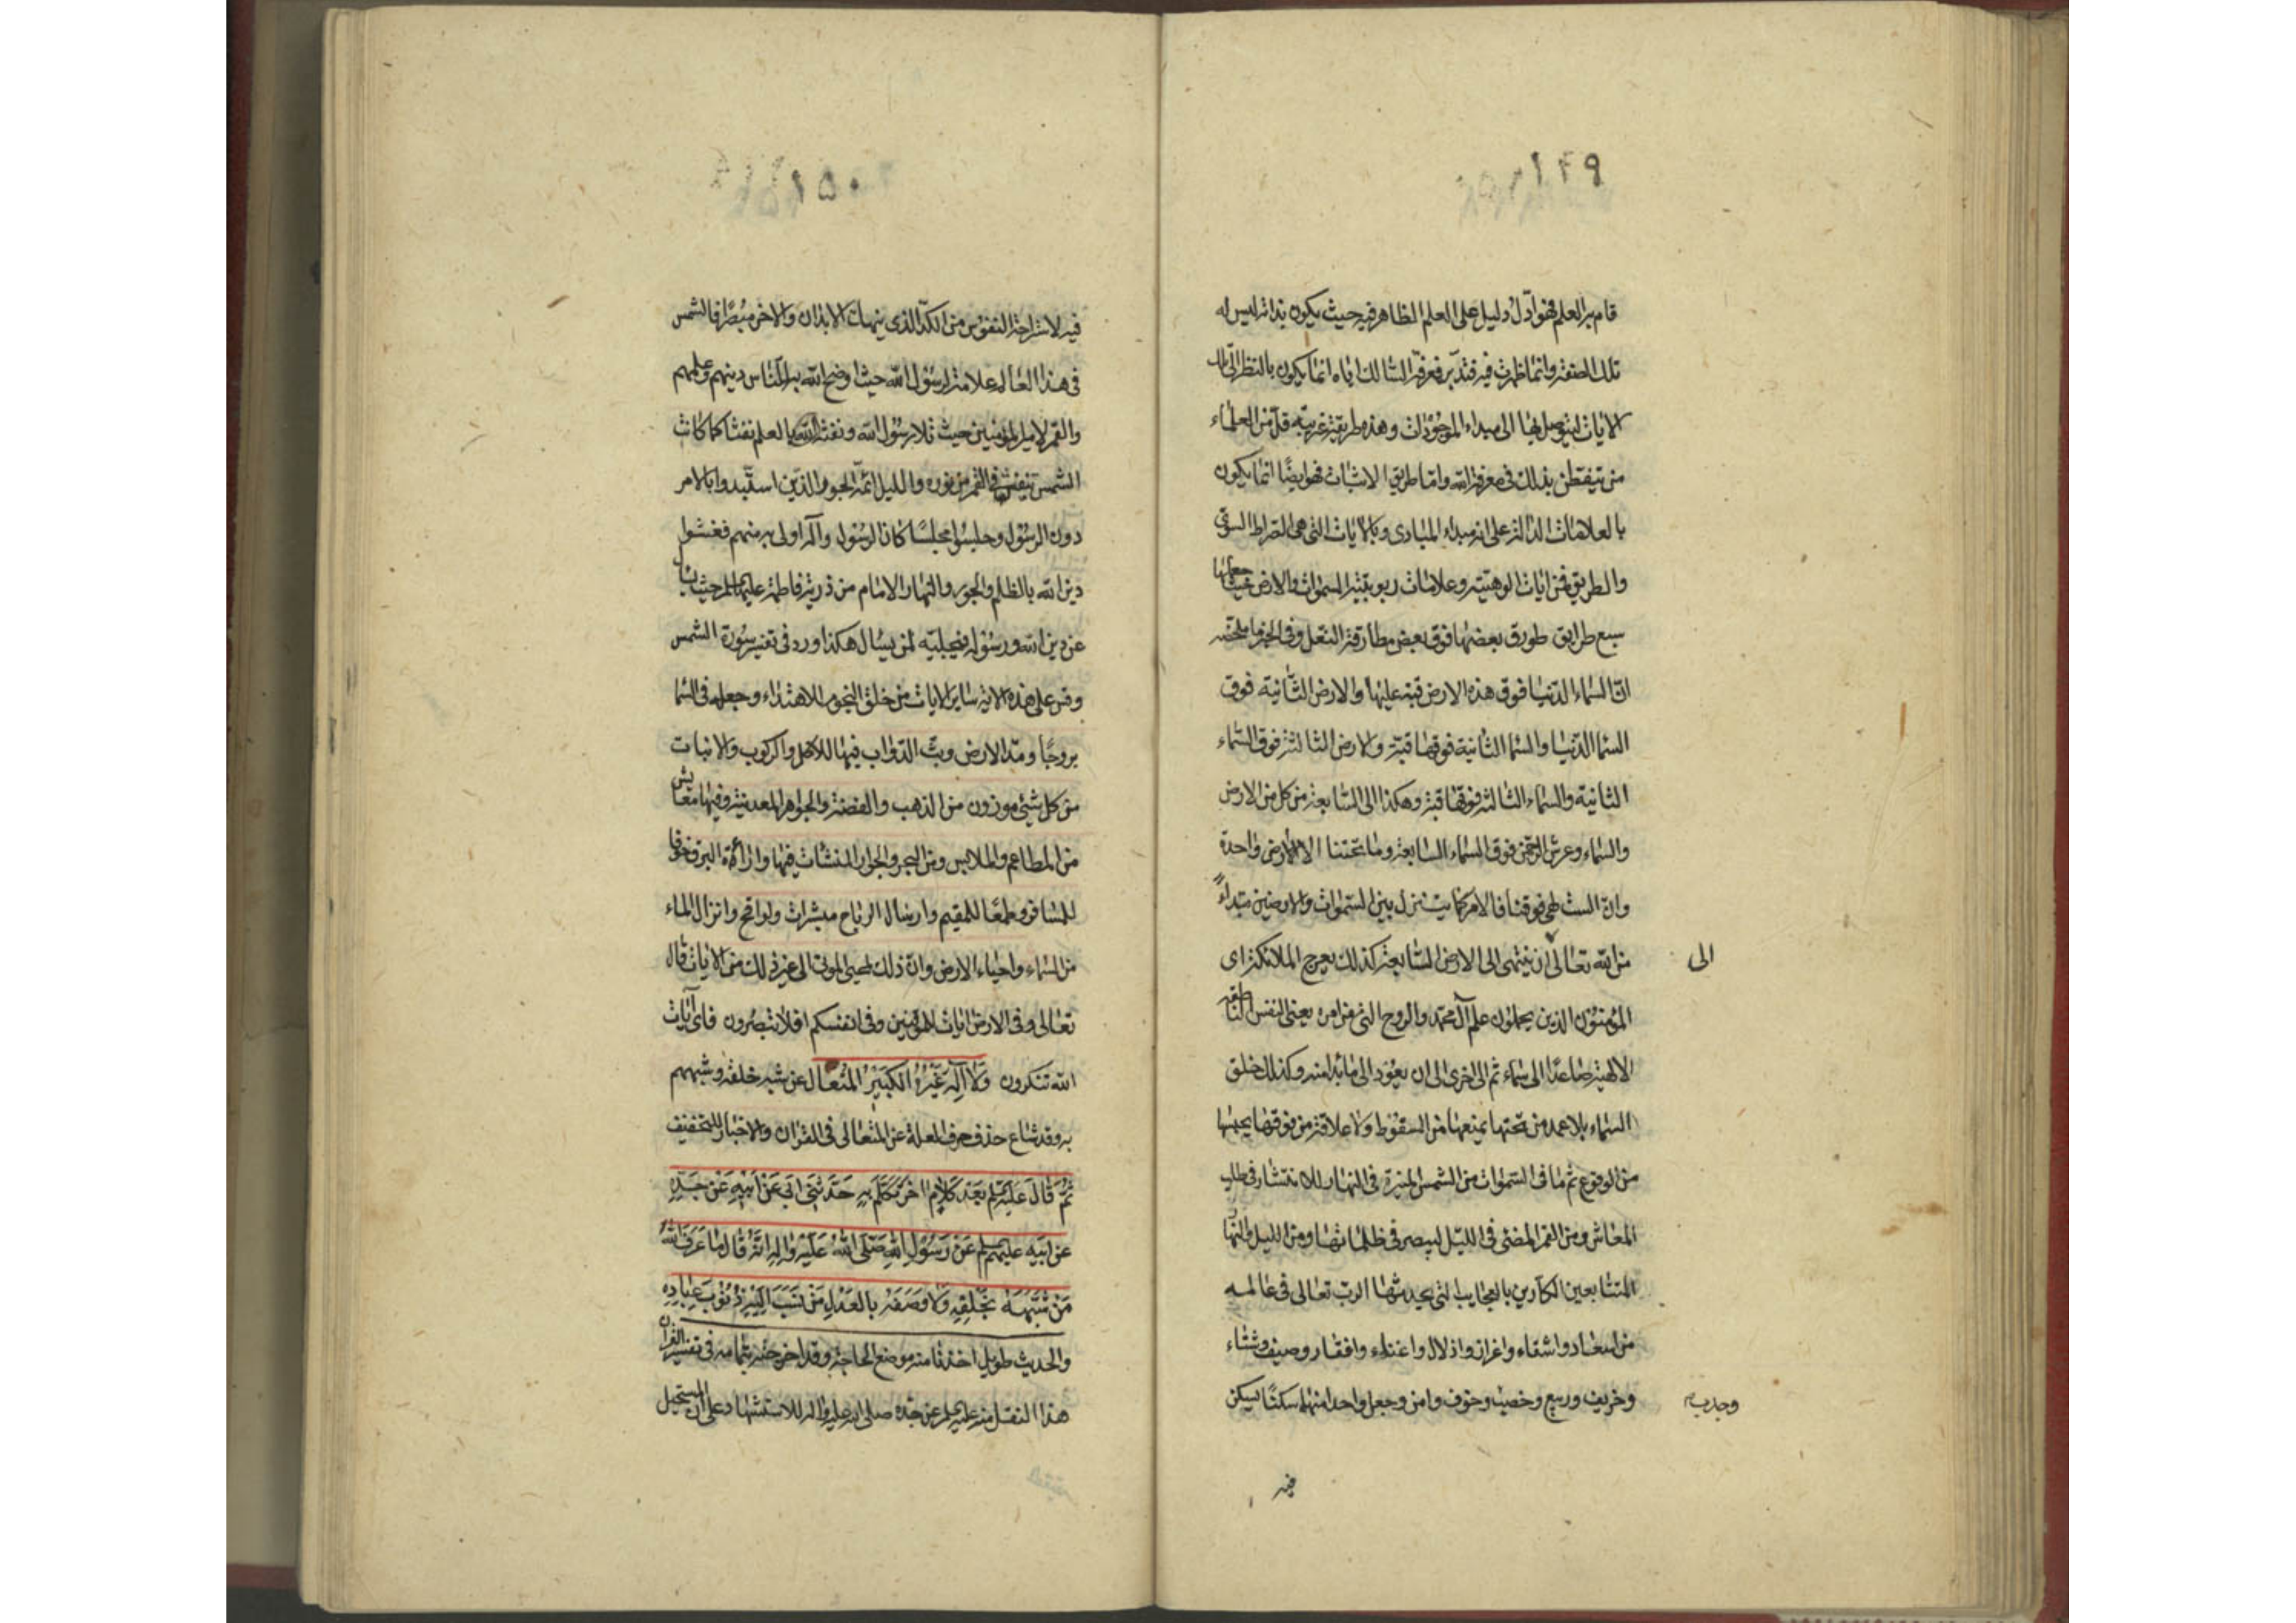 ١٤٩
قام به العلم فهو اول دليل على العلم الظاهر فيه حيث يكون بذاته ليس له
تلك الصفة وانما ظهرت فيه فتدبر فمعرفة السالك اياه انما يكون بالنظر الى تلك
الايات ليتوصل بها الى مبداء الموجودات وهذه طريقة غريبة قل من العلماء
من يتفطن بذلك في معرفة الله واما طريق الاثبات فهو ايضا انما يكون
بالعلامات الدالة على انه مبداء المبادى وبالايات التى هى الصراط السوى
والطريق فمن ايات الوهيته وعلامات ربوبيته السموات والارض حيث جعلها
سبع طرايق طورق بعضها فوق بعض مطارقة النعل وفى الخبر ما ملخصه
ان السماء الدنيا فوق هذه الارض قبة عليها والارض الثانية فوق
السما الدنيا والسما الثانية فوقها قبة والارض الثالثة فوق السماء
الثانية والسماء الثالثة فوقها قبة وهكذا الى السابعة من كل من الارض
والسماء وعرش الرحمن فوق السماء السابعة وما تحتنا الا الارض واحدة
وان الست لهى فوقنا فالامر كما يتنزل بين السموات والارضين مبتداء
من الله تعالى ان ينتهى الى الارض السابعة كذلك يعرج الملائكة اى
الى
المؤمنون الذين يحملون علم آل محمد والروح التى من امره يعنى النفس الناطقة
الالهية صاعدا الى سماء ثم الى اخرى الى ان يعود الى ما بدا منه وكذلك خلق
السماء بلا عمد من تحتها يمنعها من السقوط ولا علاقة من فوقها يحبسها
من الوقوع ثم ما فى السموات من الشمس المنيرة فى النهار للانتشار فى طلب
المعاش ومن القمر المضئ فى الليل ليبصر فى ظلماتها ومن الليل والنهار
المتتابعين الكارين بالعجايب التى يحدثها الرب تعالى فى عالمه
من اسعاد واشقاء واعزاز واذلال واغناء وافقار وصيف وشتاء
وخريف وربيع وخصب وخوف وامن وجعل واحدا منهما سكنا ليسكن
وجدب
فيه
١٥٠
فيه لاستراحة النفوس من الكد الذى ينهك الابدان والاخر مبصرا فالشمس
فى هذا العالم علامة لرسول الله حيث اوضح الله به للناس دينهم وعلمهم
والقمر لامير المؤمنين حيث تلا رسول الله ونفثه الله بالعلم نفثا كما كانت
الشمس تنفث فى القمر من نوره والليل ائمة الجور الذين استبدوا بالامر
دون الرسول وجلسوا مجلسا كان الرسول وآله اولى به منهم فغشوا
دين الله بالظلم والجور والنهار الامام من ذرية فاطمة عليها السلم حيث يسأل
عن دين الله ورسوله فيجليه لمن يسال هكذا ورد فى تفسير سورة الشمس
وقس على هذه الاية ساير الايات من خلق النجوم للاهتداء وجعله فى السما
بروجا ومد الارض وبث الدواب فيها للاكل والركوب والانبات
من كل شئ موزون من الذهب والفضة والجواهر المعدنية وفيها معايش
من المطاعم والملابس ومن البحر والجوار المنشات فيها وازائة البرق خوفا
للمسافر وطمعا للمقيم وارسال الرياح مبشرات ولواقح وانزال الماء
من السماء واحياء الارض وان ذلك لمحيى الموتى الى غير ذلك من الايات قال
تعالى وفى الارض ايات للموقنين وفى انفسكم افلا تبصرون فاى آيات
الله تنكرون وَلَا اِلٰهَ غَيْرُهُ الكَبِيْرُ المُتَعَال عن شبه خلقه وشبههم
به وقد شاع حذف حرف العلة عن المتعالى فى القران والاخبار للتخفيف
ثُمَّ قَالَ عَلَيْهِ السلم بَعْدَ كَلَامٍ اٰخَرَ تَكَلَّمَ بِهِ حَدَّثَنِى اَبِى عَنْ اَبِيْهِ عَنْ جَدِّهِ
عَن اَبِيْهِ عليهم السلم عَنْ رَسُوْلِ اللهِ صَلَّى اللهُ عَلَيْهِ وَالِهِ اَنَّهُ قَالَ مَا عَرَفَ اللهَ
مَنْ شَبَّهَهُ بِخَلْقِهِ وَلَا وَصَفَهُ بِالعَدْلِ مَنْ نَسَبَ اِلَيْهِ ذُنُوْبَ عِبَادِهِ
والحديث طويل اخذنا منه موضع الحاجة وقد اخرجته بتمامه فى تفسير القران
هذا النقل منه عليه السلم عن جده صلى الله عليه واله للاستشهاد على ان المستحيل